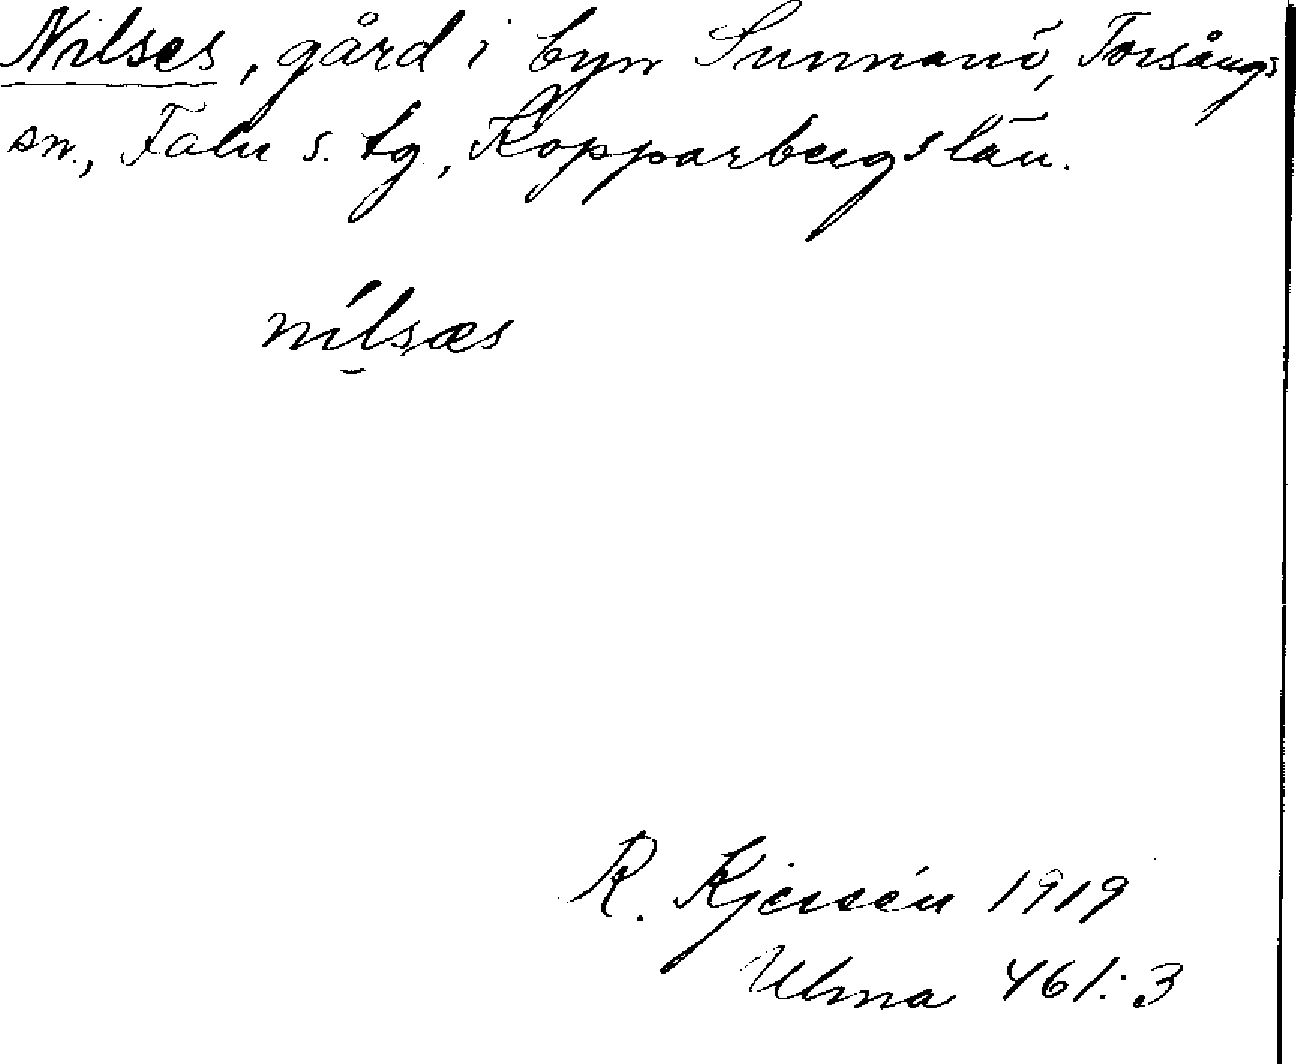 Nilses, gård i byn Sunnanö, Torsångs
sn., Falu s. tg, Kopparbergs län.
nilsæs
R. Kjersén 1919
Ulma 461:3